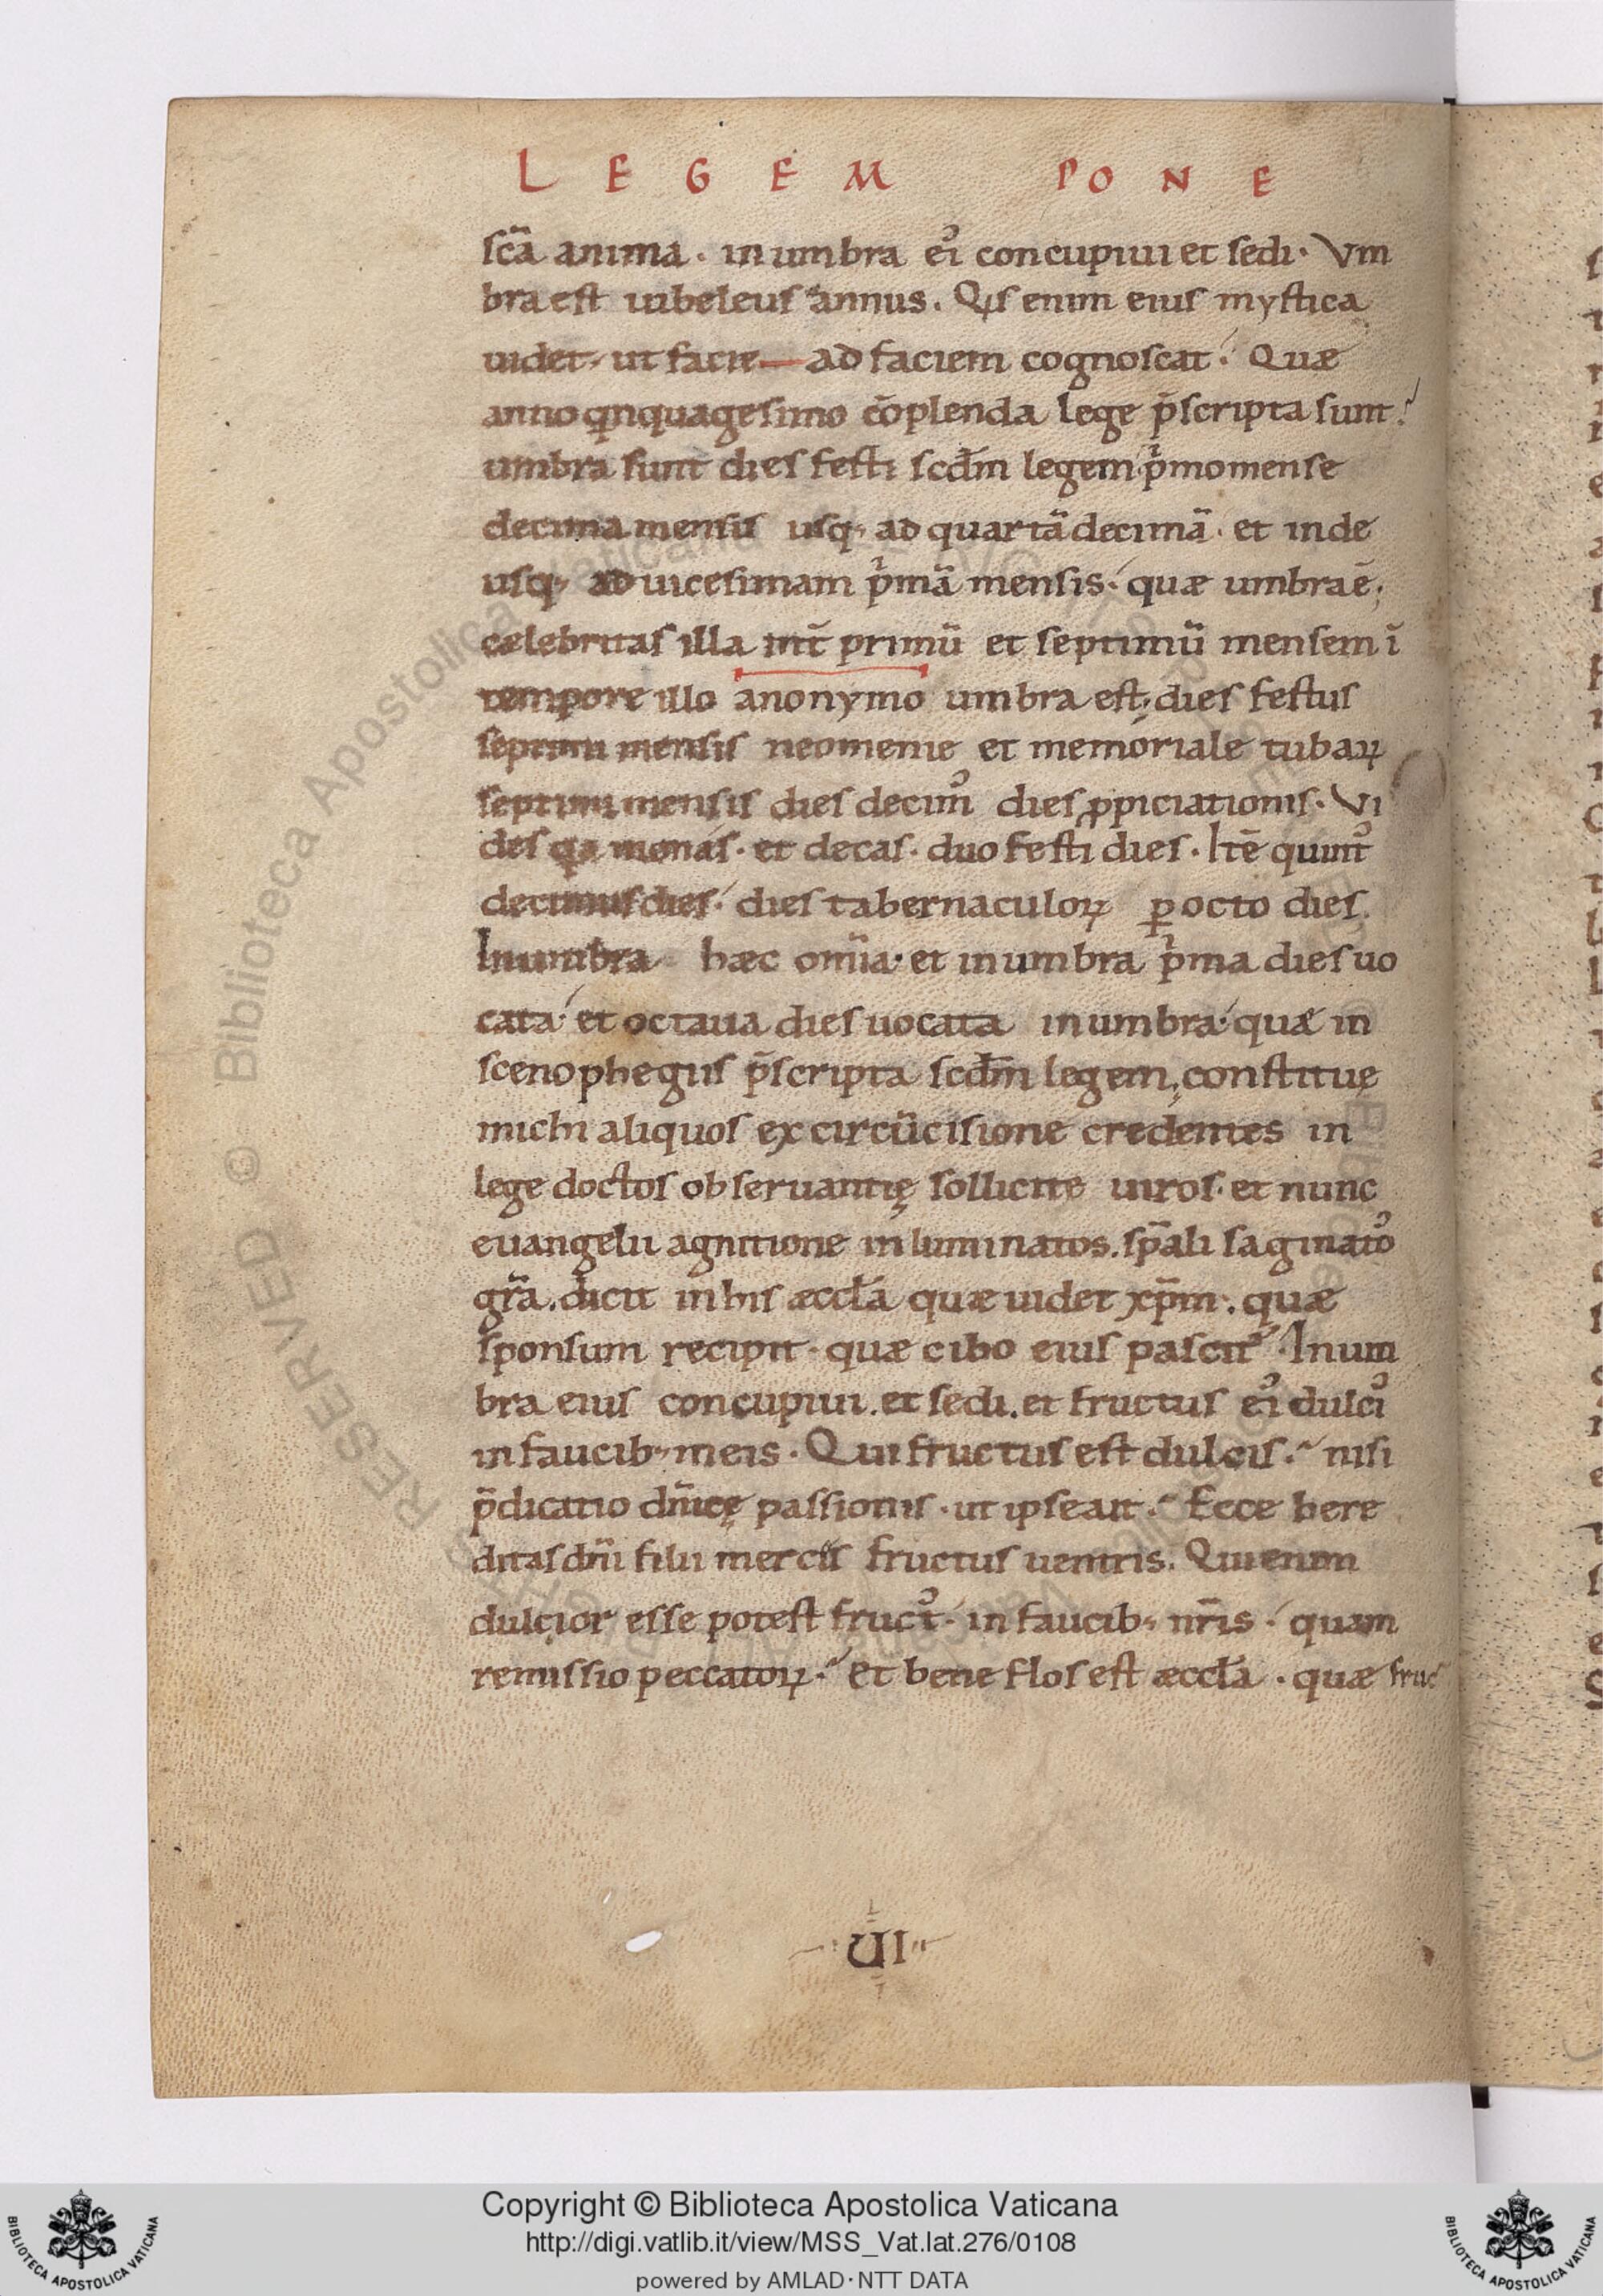 LEGEM PONE
scā anima · in umbra ei᾽ concupiui et sedi · Vm
bra est iubeleus annus. Qịs enim eius mystica
uidet, ut facie ad faciem cognoscat · Quæ
anno qinquagesimo cōplenda lege p̄scripta sunt ·
umbra sunt dies festi scdm̄ legem pͥmo mense
decima mensis usq; ad quartā decimā · et inde
usq; ad uicesimam pͥmā mensis · quæ umbra ē;
celebritas illa int̄ primū et septimū mensem ī
tempore illo anonymo umbra est; dies festus
septimi mensis neomenie et memoriale tubaꝝ
septimi mensis dies decim᾽ dies ꝓpiciationis · Vi
des qa monas · et decas · duo festi dies · Itē quint᾽
decimus dies · dies tabernaculoꝝ ꝑ octo dies.
In umbra hæc om̄ia · et in umbra pͥma dies uo
cata · et octaua dies uocata in umbra · quæ in
scenophegiis p̄scripta scdm̄ legem, constitue
michi aliquos ex circūcisione credentes in
lege doctos obseruantię sollicite uiros · et nunc
euangelii agnitione inluminatos. sp̄ali saginato᾽
gr̄a. dicit in his æccl̄a quæ uidet xp̄m · quæ
sponsum recipit · quæ cibo eius pascit᾽ · In um
bra eius concupiui. et sedi. et fructus ei᾽ dulci᾽
in faucib; meis · Qui fructus est dulcis · nisi
p̄dicatio dn̄icę passionis · ut ipse ait · Ecce here
ditas dn̄i filii merciis fructus uentris. Qui enim
dulcior esse potest fruct᾽ · in faucib; nr̄is · quam
remissio peccatoꝝ · Et bene flos est æccl̄a · quæ fruc
VI
Copyright © Biblioteca Apostolica Vaticana
http://digi.vatlib.it/view/MSS_Vat.lat.276/0108
powered by AMLAD·NTT DATA
BIBLIOTECA APOSTOLICA VATICANA
BIBLIOTECA APOSTOLICA VATICANA